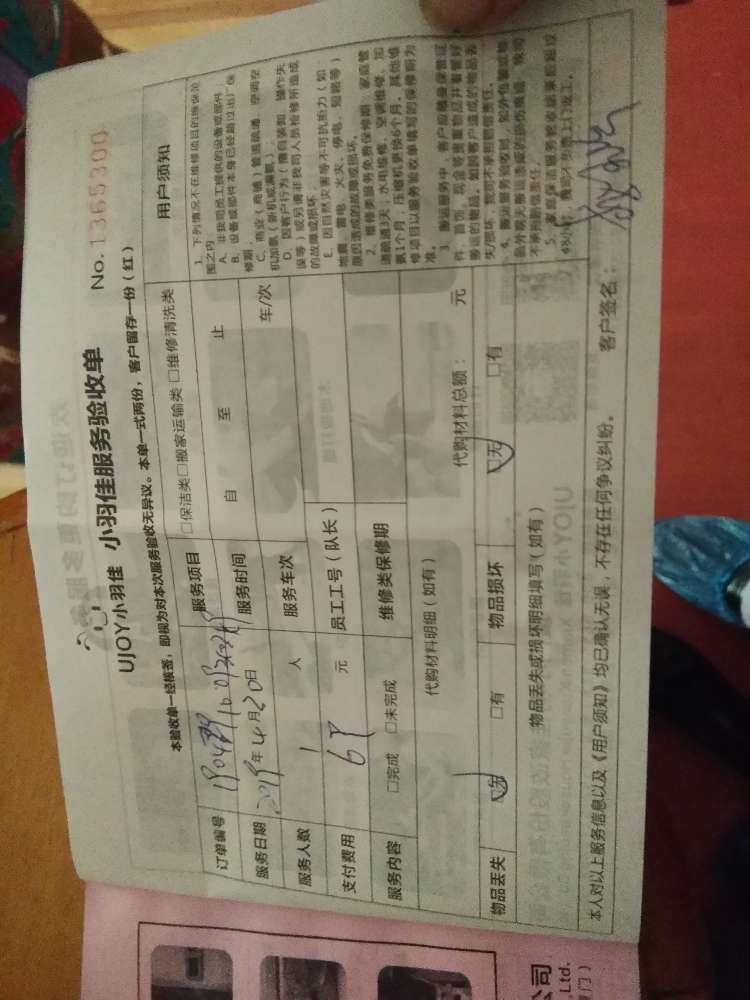 UJOY小羽佳 小羽佳服务验收单
No.1365300
本验收单一经核签，即视为对本次服务验收无异议。本单一式两份，客户留存一份（红）
订单编号
服务项目 □保洁类□搬家运输类 □维修清洗类
服务日期 2019年4月20日
服务时间 自 至 止
服务人数 1 人
服务车次 车/次
支付费用 68 元
员工工号（队长）
服务内容 □完成 □未完成
维修类保修期
代购材料明细（如有）
代购材料总额： 元
物品丢失 □无 □有
物品损坏 □无 □有
物品丢失或损坏明细填写（如有）
用户须知
1、下列情况不在维修项目的维保范
围之内：
A、非我司员工提供的设备或部件
B、设备或部件本身已经超过出厂保
修期；
C、商业（商铺）管道疏通、空调空
机加氟（新机或漏氟）；
D、因客户行为（擅自装卸、操作失
误等）或另请非我司人员检修所造成
的故障或损坏；
E、因自然灾害等不可抗拒力（如
地震、雷电、火灾、停电、短路等）
原因造成的故障或损坏。
2、维修类服务免费保修期：家庭管
道疏通3天；水电维修、空调维修、加
氟1个月；压缩机更换6个月，其他维
修项目以服务验收单填写的保修期为
准。
3、搬运服务中，客户应随身保管证
件、首饰、现金等贵重物品并看管好
搬运的物品，如因客户造成的物品丢
失/损坏，我司不承担赔偿责任。
4、搬运服务验收时，如外包装或物
品外观无搬运造成的损伤痕迹，我司
不承担赔偿责任。
5、家庭保洁服务验收结束后超过
48小时，我司不负责上门返工。
本人对以上服务信息以及《用户须知》均已确认无误，不存在任何争议纠纷。
客户签名：
公司
Ltd.
门）